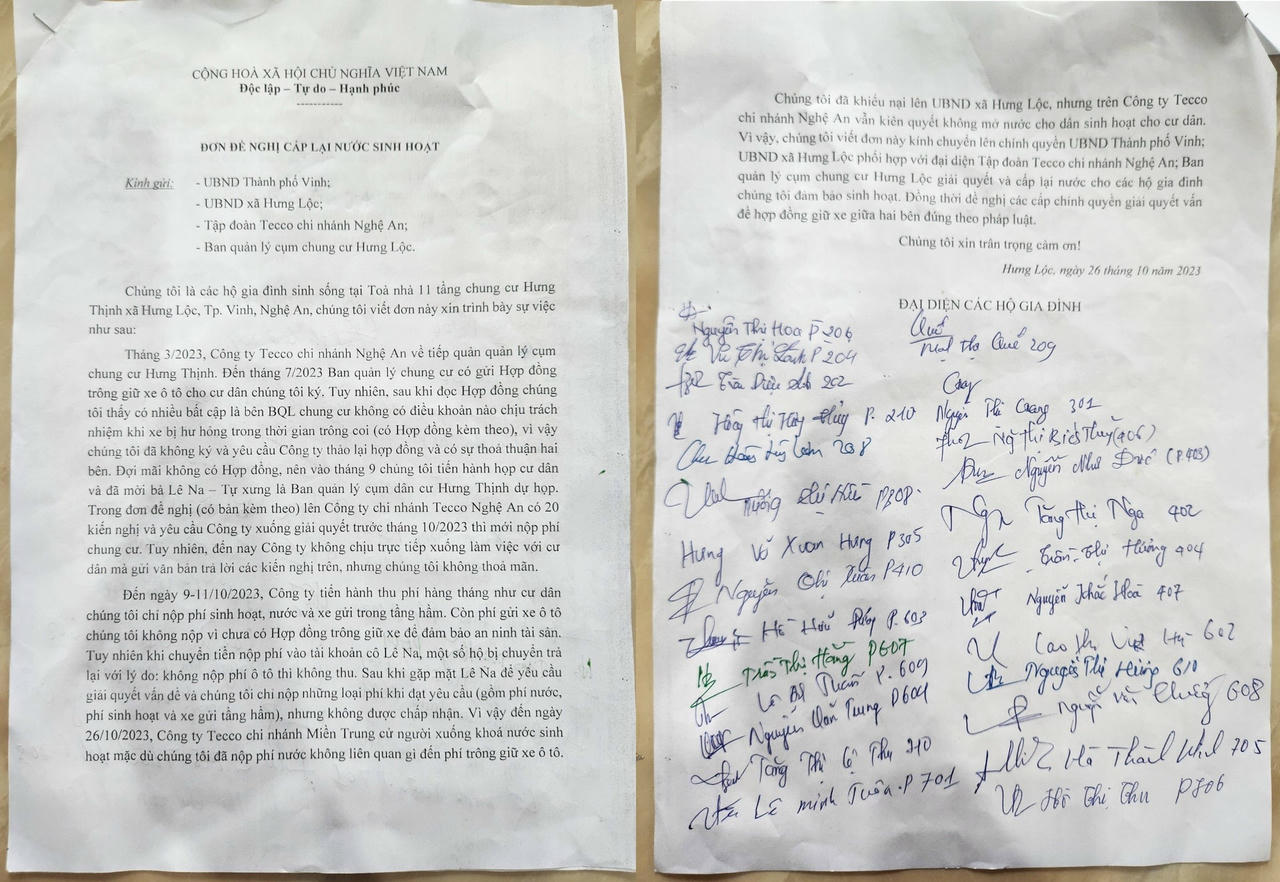 CỘNG HOÀ XÃ HỘI CHỦ NGHĨA VIỆT NAM
Độc lập – Tự do – Hạnh phúc
-----------
ĐƠN ĐỀ NGHỊ CẤP LẠI NƯỚC SINH HOẠT
Kính gửi: - UBND Thành phố Vinh;
- UBND xã Hưng Lộc;
- Tập đoàn Tecco chi nhánh Nghệ An;
- Ban quản lý cụm chung cư Hưng Lộc.
Chúng tôi là các hộ gia đình sinh sống tại Toà nhà 11 tầng chung cư Hưng
Thịnh xã Hưng Lộc, Tp. Vinh, Nghệ An, chúng tôi viết đơn này xin trình bày sự việc
như sau:
Tháng 3/2023, Công ty Tecco chi nhánh Nghệ An về tiếp quản quản lý cụm
chung cư Hưng Thịnh. Đến tháng 7/2023 Ban quản lý chung cư có gửi Hợp đồng
trông giữ xe ô tô cho cư dân chúng tôi ký. Tuy nhiên, sau khi đọc Hợp đồng chúng
tôi thấy có nhiều bất cập là bên BQL chung cư không có điều khoản nào chịu trách
nhiệm khi xe bị hư hỏng trong thời gian trông coi (có Hợp đồng kèm theo), vì vậy
chúng tôi đã không ký và yêu cầu Công ty thảo lại hợp đồng và có sự thoả thuận hai
bên. Đợi mãi không có Hợp đồng, nên vào tháng 9 chúng tôi tiến hành họp cư dân
và đã mời bà Lê Na – Tự xưng là Ban quản lý cụm dân cư Hưng Thịnh dự họp.
Trong đơn đề nghị (có bản kèm theo) lên Công ty chi nhánh Tecco Nghệ An có 20
kiến nghị và yêu cầu Công ty xuống giải quyết trước tháng 10/2023 thì mới nộp phí
chung cư. Tuy nhiên, đến nay Công ty không chịu trực tiếp xuống làm việc với cư
dân mà gửi văn bản trả lời các kiến nghị trên, nhưng chúng tôi không thoả mãn.
Đến ngày 9-11/10/2023, Công ty tiến hành thu phí hàng tháng như cư dân
chúng tôi chỉ nộp phí sinh hoạt, nước và xe gửi trong tầng hầm. Còn phí gửi xe ô tô
chúng tôi không nộp vì chưa có Hợp đồng trông giữ xe để đảm bảo an ninh tài sản.
Tuy nhiên khi chuyển tiền nộp phí vào tài khoản cô Lê Na, một số hộ bị chuyển trả
lại với lý do: không nộp phí ô tô thì không thu. Sau khi gặp mặt Lê Na để yêu cầu
giải quyết vấn đề và chúng tôi chỉ nộp những loại phí khi đạt yêu cầu (gồm phí nước,
phí sinh hoạt và xe gửi tầng hầm), nhưng không được chấp nhận. Vì vậy đến ngày
26/10/2023, Công ty Tecco chi nhánh Miền Trung cử người xuống khoá nước sinh
hoạt mặc dù chúng tôi đã nộp phí nước không liên quan gì đến phí trông giữ xe ô tô.
Chúng tôi đã khiếu nại lên UBND xã Hưng Lộc, nhưng trên Công ty Tecco
chi nhánh Nghệ An vẫn kiên quyết không mở nước cho dân sinh hoạt cho cư dân.
Vì vậy, chúng tôi viết đơn này kính chuyển lên chính quyền UBND Thành phố Vinh;
UBND xã Hưng Lộc phối hợp với đại diện Tập đoàn Tecco chi nhánh Nghệ An; Ban
quản lý cụm chung cư Hưng Lộc giải quyết và cấp lại nước cho các hộ gia đình
chúng tôi đảm bảo sinh hoạt. Đồng thời đề nghị các cấp chính quyền giải quyết vấn
đề hợp đồng giữ xe giữa hai bên đúng theo pháp luật.
Chúng tôi xin trân trọng cảm ơn!
Hưng Lộc, ngày 26 tháng 10 năm 2023
ĐẠI DIỆN CÁC HỘ GIA ĐÌNH
Nguyễn Thị Hoa P206
Vũ Thị P204
202
P. 210
208
P308
Hưng Võ Xuân Hưng P305
Nguyễn Thị Xuân P410
P.603
Trần Thị Hằng P607
P.609
Nguyễn Văn Trung P604
Tăng Thị 210
Lê Minh Tuấn P701
Quế
Thị Quế 209
Nguyễn Thị 301
Thị Bích Thủy (406)
Nguyễn Như (P403)
Nga Tăng Thị Nga 402
Trần Thị Hương 404
Nguyễn Khắc Hoà 407
Cao Thị 602
Nguyễn Thị Hùng 610
Nguyễn Văn 608
Hà Thành 705
Hồ Thị Thu P706